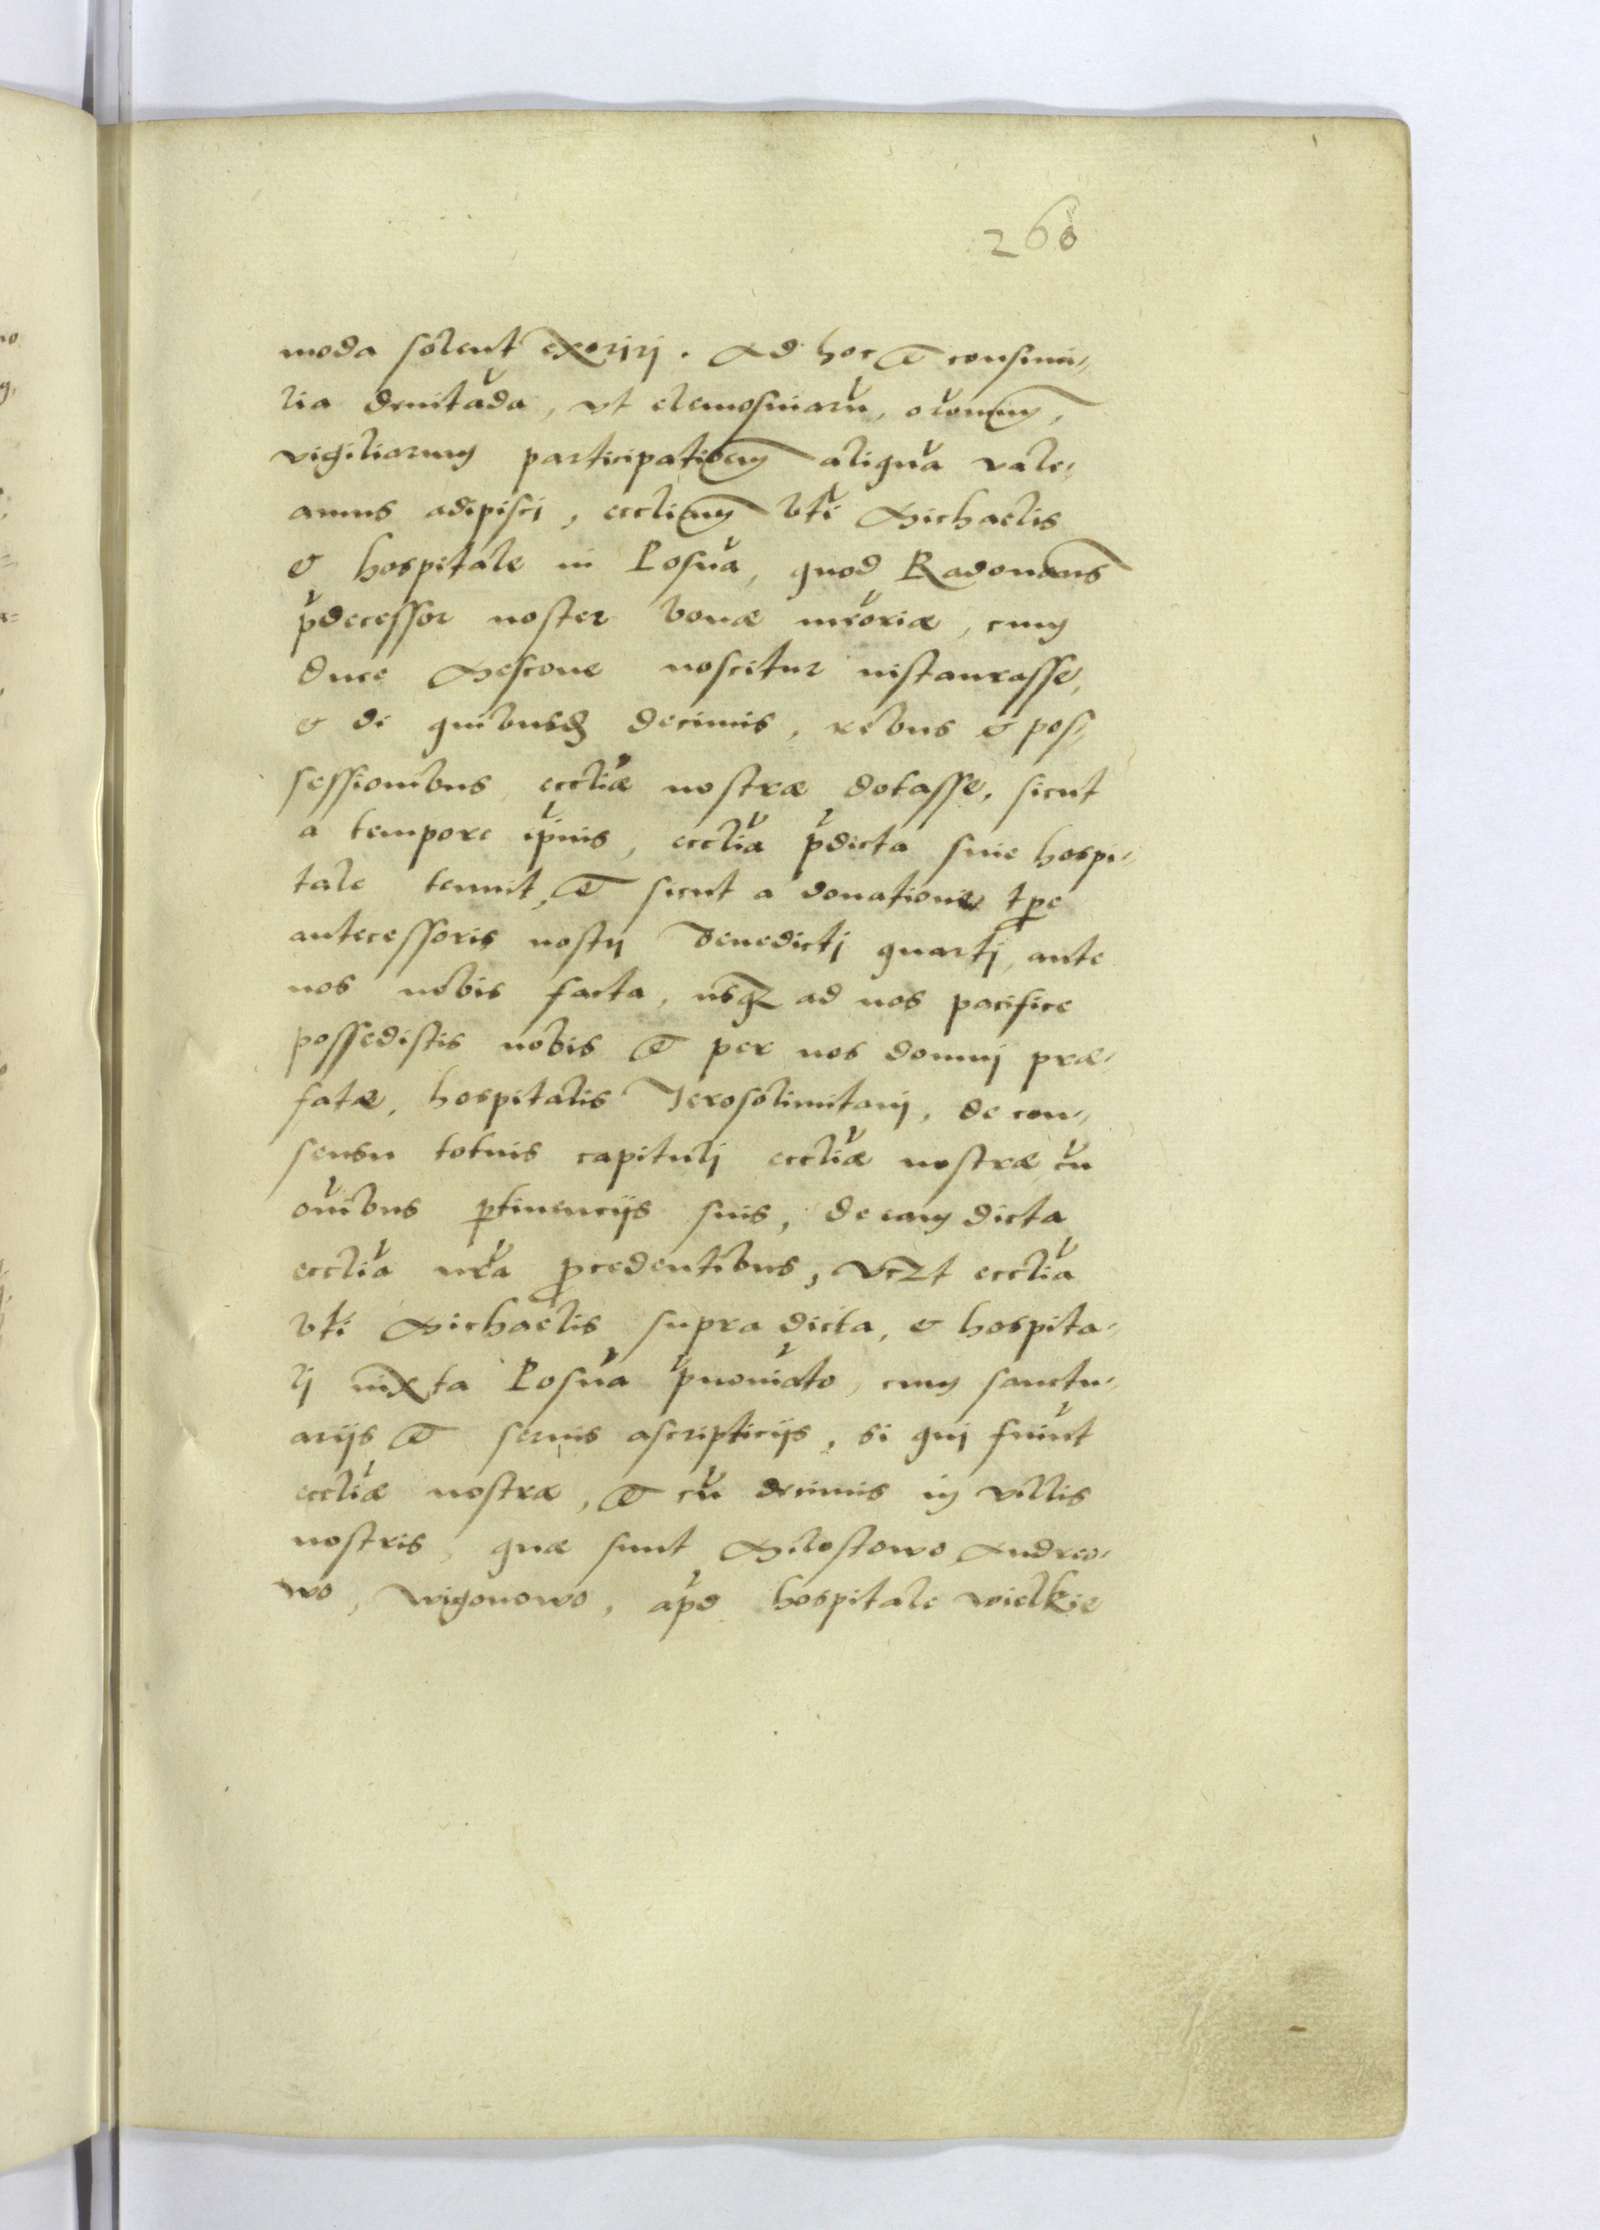 260
moda solent exorirj. Ad hoc et consimi-
lia deuitāda, vt elemosinarū, orõnum,
vigiliarum participationem aliquā vale-
amus adipiscj, ecclīam bti Michaelis
& hospitale in Posnā, quod Radouanus
p̃decessor noster bonæ memõriæ, cum
duce Mescone noscitur instaurasse,
& de quibusd decimis, rebus & pos-
sessionibus ecclīæ nostræ dotasse, sicut
a tempore ip̃ius, ecclīa p̃dicta siue hospi-
tale tenuit, et sicut a donatione tp̱e
antecessoris nostrj Benedictj quartj, ante
nos nobis facta, usqʒ ad nos pacifice
possedistis nobis et per nos domuj præ-
fatæ, hospitalis Jerosolimitanj, de con-
sensu totuis capitulj ecclīæ nostræ cū
oĩnibus ꝑtinencijs suis, de eam dicta
ecclīa nrã ꝓcedentibus, vczt ecclīa
bti Michaelis supra dicta, & hospita-
lj iuxta Posnā p̃nomiãto, cum sanctu-
arijs et seruis ascripticijs, si quj fuĩnt
ecclīæ nostræ, et cū decimis in villis
nostris, quæ sunt Milostowo Andreo-
wo, wigonowo, apd̃ hospitale wielkie